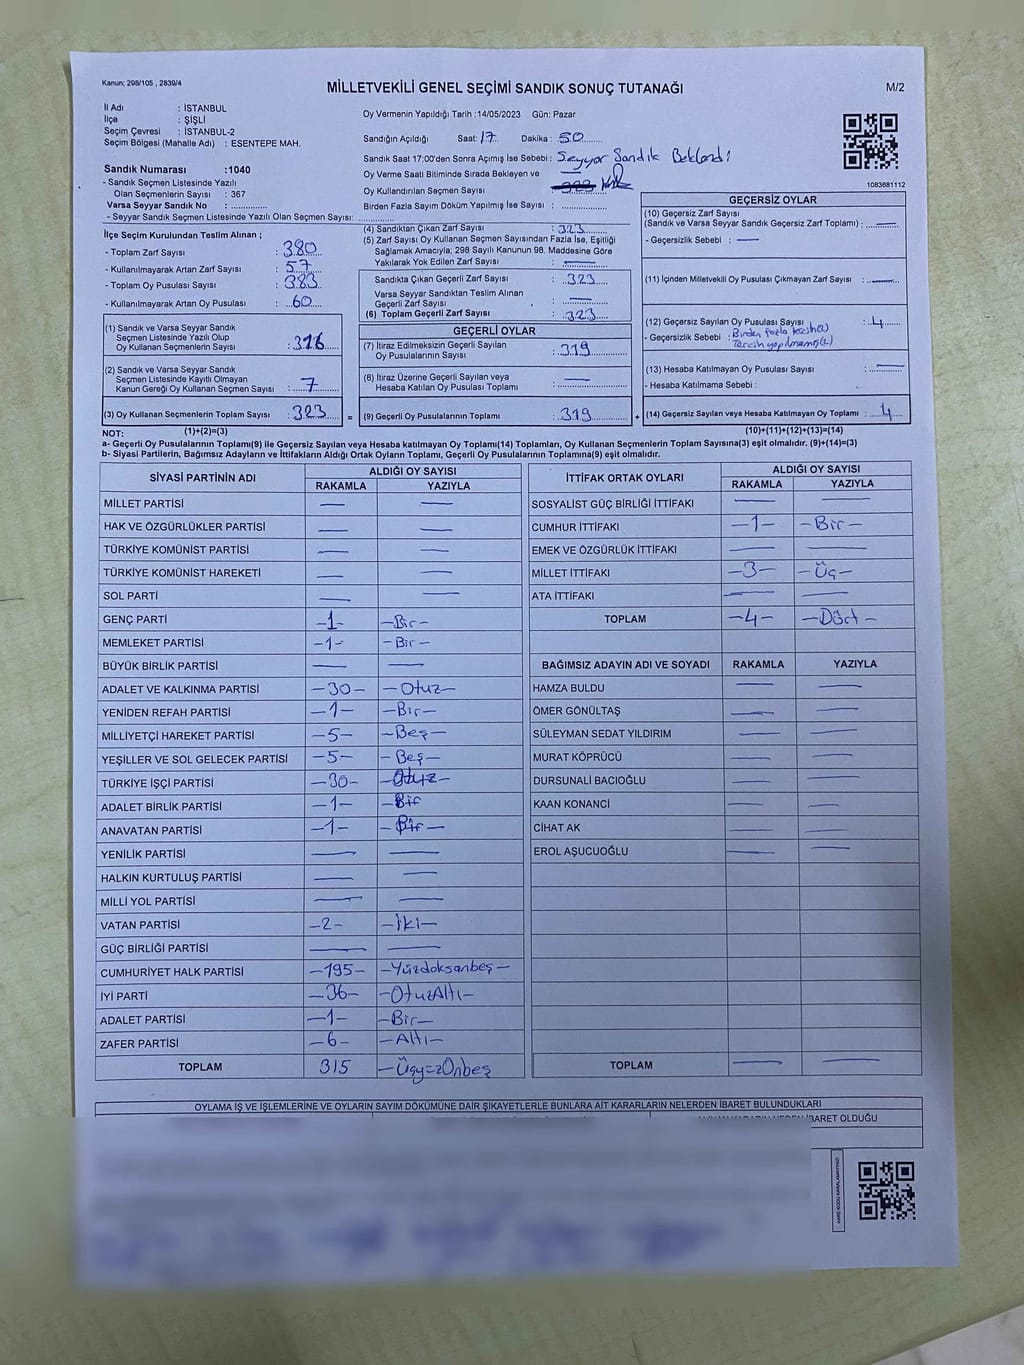 Kanun; 298/105 , 2839/4
MİLLETVEKİLİ GENEL SEÇİMİ SANDIK SONUÇ TUTANAĞI
M/2
İl Adı : İSTANBUL
İlçe : ŞİŞLİ
Seçim Çevresi : İSTANBUL-2
Seçim Bölgesi (Mahalle Adı) : ESENTEPE MAH.
Oy Vermenin Yapıldığı Tarih :14/05/2023 Gün: Pazar
Sandığın Açıldığı Saat: 17 Dakika : 50
Sandık Saat 17:00'den Sonra Açımış İse Sebebi : Seyyar Sandık Beklendi
Oy Verme Saati Bitiminde Sırada Bekleyen ve
Oy Kullandırılan Seçmen Sayısı :
Birden Fazla Sayım Döküm Yapılmış İse Sayısı :
1083681112
Sandık Numarası :1040
- Sandık Seçmen Listesinde Yazılı
Olan Seçmenlerin Sayısı : 367
Varsa Seyyar Sandık No :
- Seyyar Sandık Seçmen Listesinde Yazılı Olan Seçmen Sayısı:
İlçe Seçim Kurulundan Teslim Alınan ;
- Toplam Zarf Sayısı : 380
- Kullanılmayarak Artan Zarf Sayısı : 57
- Toplam Oy Pusulası Sayısı : 383
- Kullanılmayarak Artan Oy Pusulası : 60
(1) Sandık ve Varsa Seyyar Sandık
Seçmen Listesinde Yazılı Olup
Oy Kullanan Seçmenlerin Sayısı : 316
(2) Sandık ve Varsa Seyyar Sandık
Seçmen Listesinde Kayıtlı Olmayan
Kanun Gereği Oy Kullanan Seçmen Sayısı : 7
(3) Oy Kullanan Seçmenlerin Toplam Sayısı : 323 =
(1)+(2)=(3)
(4) Sandıktan Çıkan Zarf Sayısı : 323
(5) Zarf Sayısı Oy Kullanan Seçmen Sayısından Fazla İse, Eşitliği
Sağlamak Amacıyla; 298 Sayılı Kanunun 98. Maddesine Göre
Yakılarak Yok Edilen Zarf Sayısı : —
Sandıkta Çıkan Geçerli Zarf Sayısı : 323
Varsa Seyyar Sandıktan Teslim Alınan
Geçerli Zarf Sayısı : —
(6) Toplam Geçerli Zarf Sayısı : 323
GEÇERLİ OYLAR
(7) İtiraz Edilmeksizin Geçerli Sayılan
Oy Pusulalarının Sayısı : 319
(8) İtiraz Üzerine Geçerli Sayılan veya
Hesaba Katılan Oy Pusulası Toplamı : —
(9) Geçerli Oy Pusulalarının Toplamı : 319 +
GEÇERSİZ OYLAR
(10) Geçersiz Zarf Sayısı
(Sandık ve Varsa Seyyar Sandık Geçersiz Zarf Toplamı) : —
- Geçersizlik Sebebi : —
(11) İçinden Milletvekili Oy Pusulası Çıkmayan Zarf Sayısı : —
(12) Geçersiz Sayılan Oy Pusulası Sayısı : 4
- Geçersizlik Sebebi : Birden fazla tercih
Tercih yapılmamış
(13) Hesaba Katılmayan Oy Pusulası Sayısı : —
- Hesaba Katılmama Sebebi :
(14) Geçersiz Sayılan veya Hesaba Katılmayan Oy Toplamı : 4
(10)+(11)+(12)+(13)=(14)
NOT:
a- Geçerli Oy Pusulalarının Toplamı(9) ile Geçersiz Sayılan veya Hesaba Katılmayan Oy Toplamı(14) Toplamları, Oy Kullanan Seçmenlerin Toplam Sayısına(3) eşit olmalıdır. (9)+(14)=(3)
b- Siyasi Partilerin, Bağımsız Adayların ve İttifakların Aldığı Ortak Oyların Toplamı, Geçerli Oy Pusulalarının Toplamına(9) eşit olmalıdır.
SİYASİ PARTİNİN ADI ALDIĞI OY SAYISI
RAKAMLA YAZIYLA
MİLLET PARTİSİ — —
HAK VE ÖZGÜRLÜKLER PARTİSİ — —
TÜRKİYE KOMÜNİST PARTİSİ — —
TÜRKİYE KOMÜNİST HAREKETİ — —
SOL PARTİ — —
GENÇ PARTİ –1– –Bir–
MEMLEKET PARTİSİ –1– –Bir–
BÜYÜK BİRLİK PARTİSİ — —
ADALET VE KALKINMA PARTİSİ –30– –Otuz–
YENİDEN REFAH PARTİSİ –1– –Bir–
MİLLİYETÇİ HAREKET PARTİSİ –5– –Beş–
YEŞİLLER VE SOL GELECEK PARTİSİ –5– –Beş–
TÜRKİYE İŞÇİ PARTİSİ –30– –Otuz–
ADALET BİRLİK PARTİSİ –1– –Bir
ANAVATAN PARTİSİ –1– –Bir–
YENİLİK PARTİSİ — —
HALKIN KURTULUŞ PARTİSİ — —
MİLLİ YOL PARTİSİ — —
VATAN PARTİSİ –2– –İki–
GÜÇ BİRLİĞİ PARTİSİ — —
CUMHURİYET HALK PARTİSİ –195– –Yüzdoksanbeş–
İYİ PARTİ –36– –OtuzAltı–
ADALET PARTİSİ –1– –Bir–
ZAFER PARTİSİ –6– –Altı–
TOPLAM 315 –ÜçyüzOnbeş
İTTİFAK ORTAK OYLARI ALDIĞI OY SAYISI
RAKAMLA YAZIYLA
SOSYALİST GÜÇ BİRLİĞİ İTTİFAKI — —
CUMHUR İTTİFAKI –1– –Bir–
EMEK VE ÖZGÜRLÜK İTTİFAKI — —
MİLLET İTTİFAKI –3– –Üç–
ATA İTTİFAKI — —
TOPLAM –4– –Dört–
BAĞIMSIZ ADAYIN ADI VE SOYADI RAKAMLA YAZIYLA
HAMZA BULDU — —
ÖMER GÖNÜLTAŞ — —
SÜLEYMAN SEDAT YILDIRIM — —
MURAT KÖPRÜCÜ — —
DURSUNALİ BACIOĞLU — —
KAAN KONANCİ — —
CİHAT AK — —
EROL AŞUCUOĞLU — —
TOPLAM — —
OYLAMA İŞ VE İŞLEMLERİNE VE OYLARIN SAYIM DÖKÜMÜNE DAİR ŞİKAYETLERLE BUNLARA AİT KARARLARIN NELERDEN İBARET BULUNDUKLARI
İBARET OLDUĞU
KARE KODU KARALAMAYINIZ!